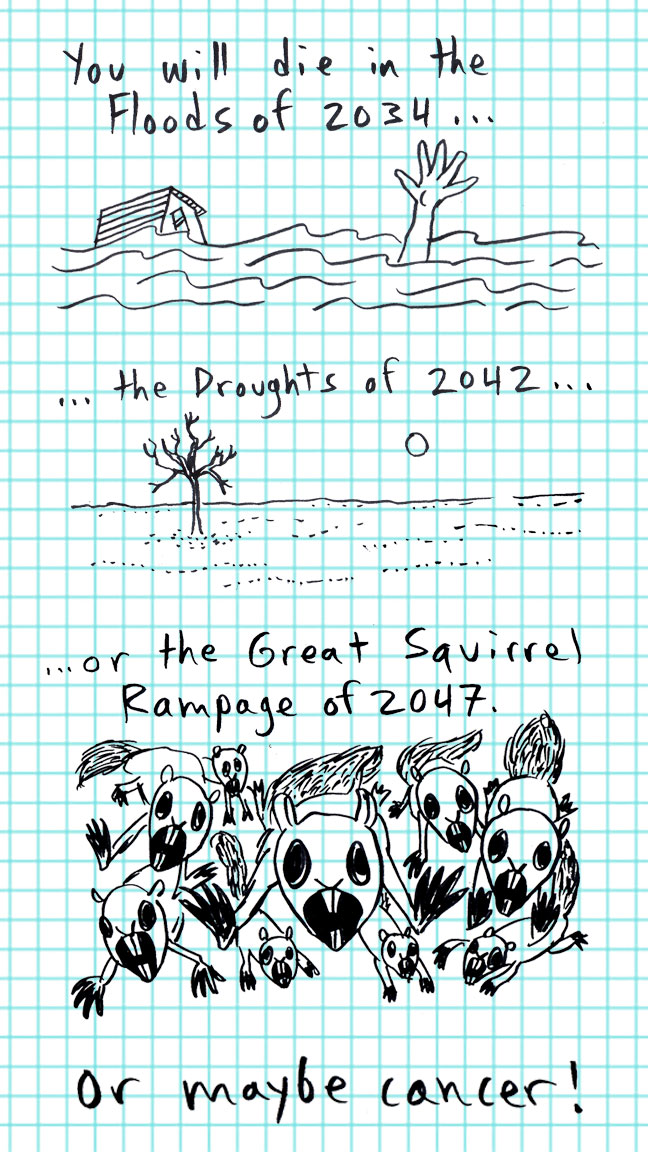 You will die in the
Floods of 2034...
...the Droughts of 2042...
...or the Great Squirrel
Rampage of 2047.
Or maybe cancer!